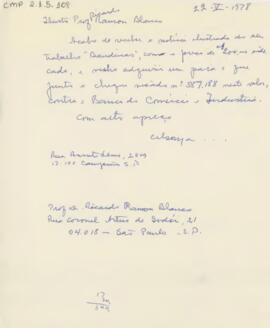 CMP 2.1.5.309
22-XI-1978
Ricardo
Ilustre Prof. Ramon Blanco
Acabo de receber a notícia ilustrada do seu
trabalho "Bandeiras", como o preço de
cada, e venho adquirir um para o que
junto o cheque nº 387,188 neste valor,
contra o Banco do Comércio e Indústria.
Com alto apreço
13.100 Campinas S.P.
Prof. Dr. Ricardo Ramon Blanco
Rua Coronel Artur de Godói, 21
04.018 - São Paulo - S.P.